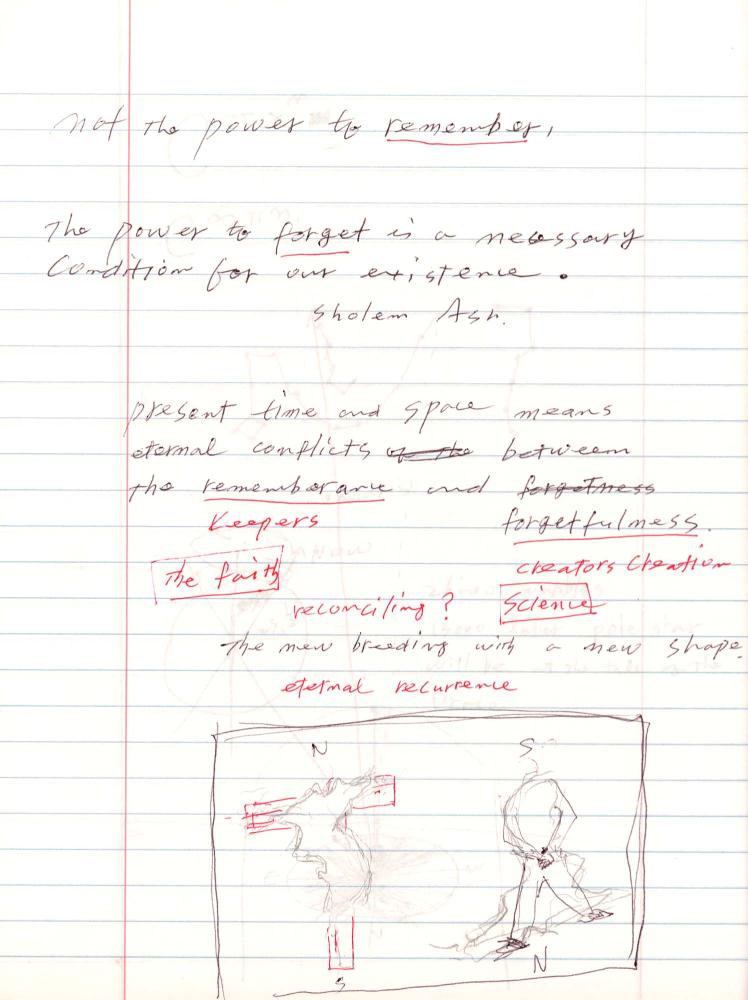 not the power to remember,
The power to forget is a necessary
Condition for our existence.
Sholem Ash.
present time and space means
eternal conflicts of the between
the rememberance and forgetness
Keepers forgetfulness.
The faith creators Creation
reconciling? Science
The new breeding with a new shape.
eternal recurrence
N S
S N